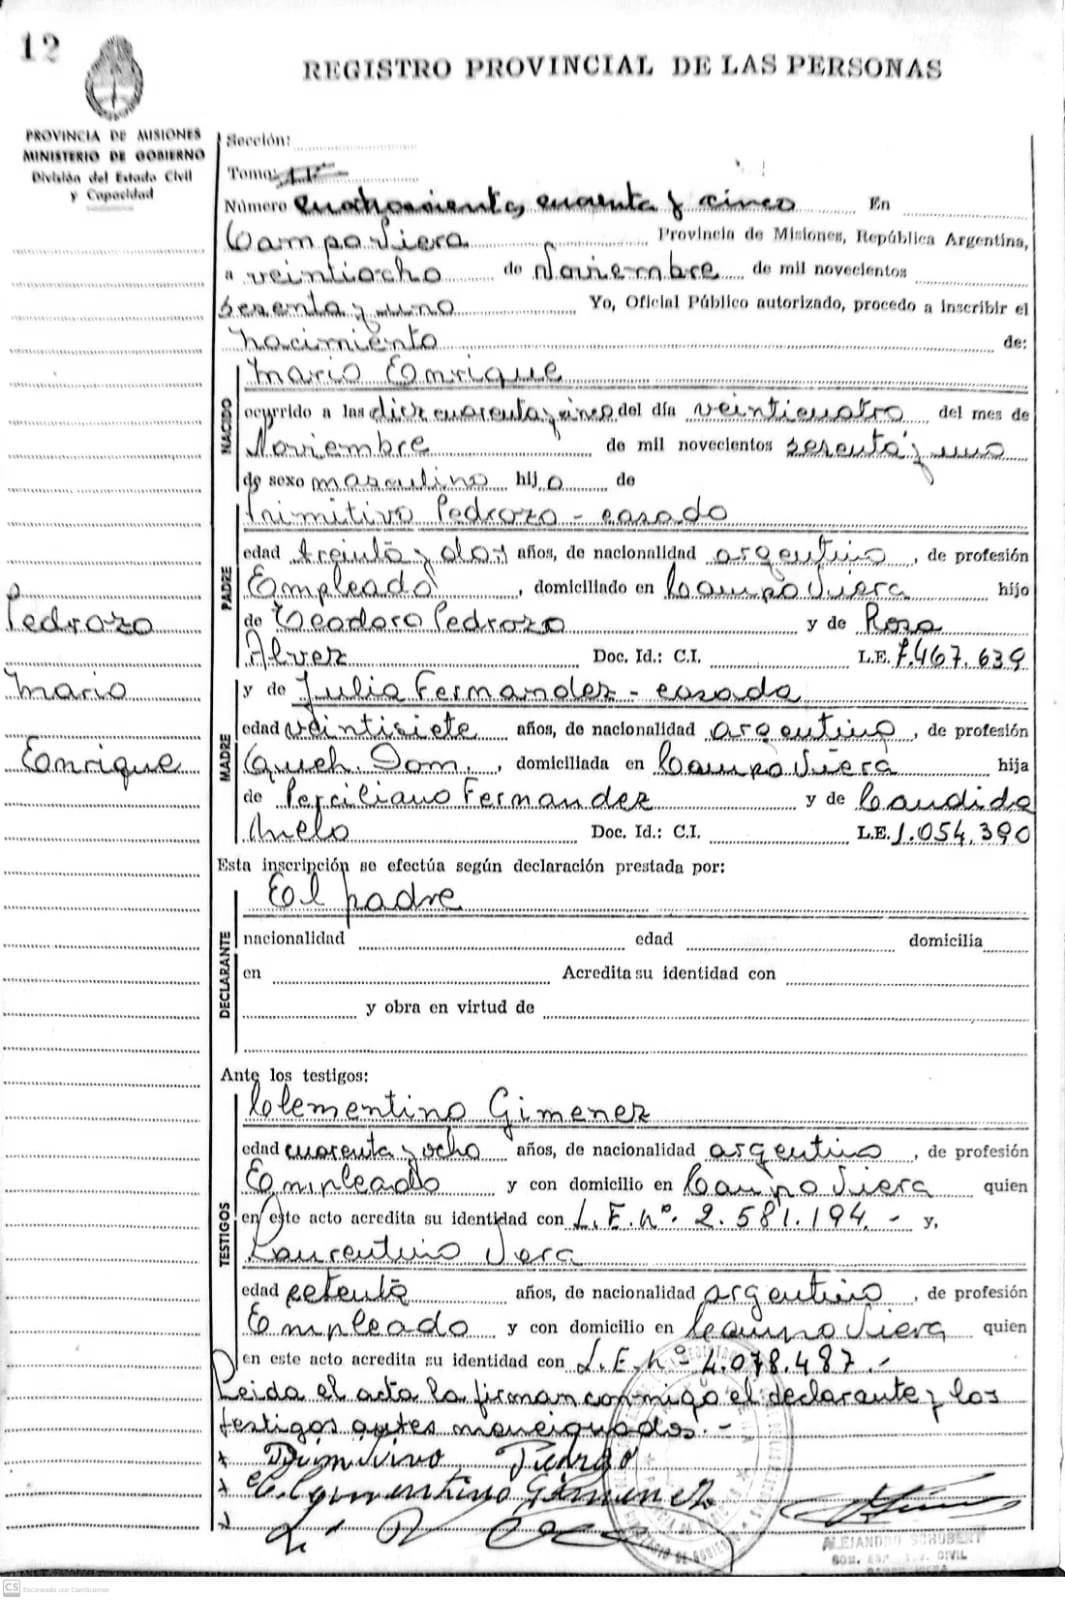 12
REGISTRO PROVINCIAL DE LAS PERSONAS
PROVINCIA DE MISIONES
MINISTERIO DE GOBIERNO
División del Estado Civil
y Capacidad
Sección:
Tomo:
Número cuatrocientos cuarenta y cinco En
Campo Viera Provincia de Misiones, República Argentina,
a veintiocho de Noviembre de mil novecientos
sesenta y uno Yo, Oficial Público autorizado, procedo a inscribir el
nacimiento de:
NACIDO
Mario Enrique
ocurrido a las diez cuarenta y cinco del día veinticuatro del mes de
Noviembre de mil novecientos sesenta y uno
de sexo masculino hijo de
PADRE
Primitivo Pedrozo - casado
edad treinta y dos años, de nacionalidad argentino, de profesión
Empleado, domiciliado en Campo Viera hijo
de Teodoro Pedrozo y de Rosa
Alvez Doc. Id.: C.I. L.E. 7.467.639
Pedrozo
Mario
Enrique
MADRE
y de Julia Fernandez - casada
edad veintisiete años, de nacionalidad argentina, de profesión
Queh. Dom., domiciliada en Campo Viera hija
de Perciliano Fernandez y de Candida
Melo Doc. Id.: C.I. L.E. 1.054.390
Esta inscripción se efectúa según declaración prestada por:
DECLARANTE
El padre
nacionalidad edad domicilia
en Acredita su identidad con
y obra en virtud de
Ante los testigos:
TESTIGOS
Clementino Gimenez
edad cuarenta y ocho años, de nacionalidad argentino, de profesión
Empleado y con domicilio en Campo Viera quien
en este acto acredita su identidad con L.E.nº. 2.581.194.- y,
Laurentino Vera
edad setenta años, de nacionalidad argentino, de profesión
Empleado y con domicilio en Campo Viera quien
en este acto acredita su identidad con L.E.nº 4.078.487.-
Leida el acta la firman conmigo el declarante y los
testigos antes mencionados.-
Clementino Gimenez
ALEJANDRO SCHUBERT
CS Escaneado con CamScanner